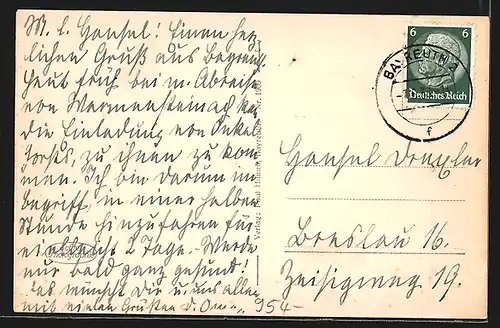 M. l. Hansel! Einen herz-
lichen Gruß aus Bayreuth
Heut früh bei m. Abreise
von Warmensteinach kam
die Einladung von Onkel
zu ihnen zu kom-
men. Ich bin darum im
begriff in einer halben
Stunde hinzufahren für
vielleicht 2 Tage. Werde
nur bald ganz gesund!
das wünscht Dir u. uns allen
mit vielen Grüßen D. Om
954-
Photographie
Verlag:
6 6
Deutsches Reich
BAYREUTH 2
f
Hansel
Breslau 16.
Zeisigweg 19.